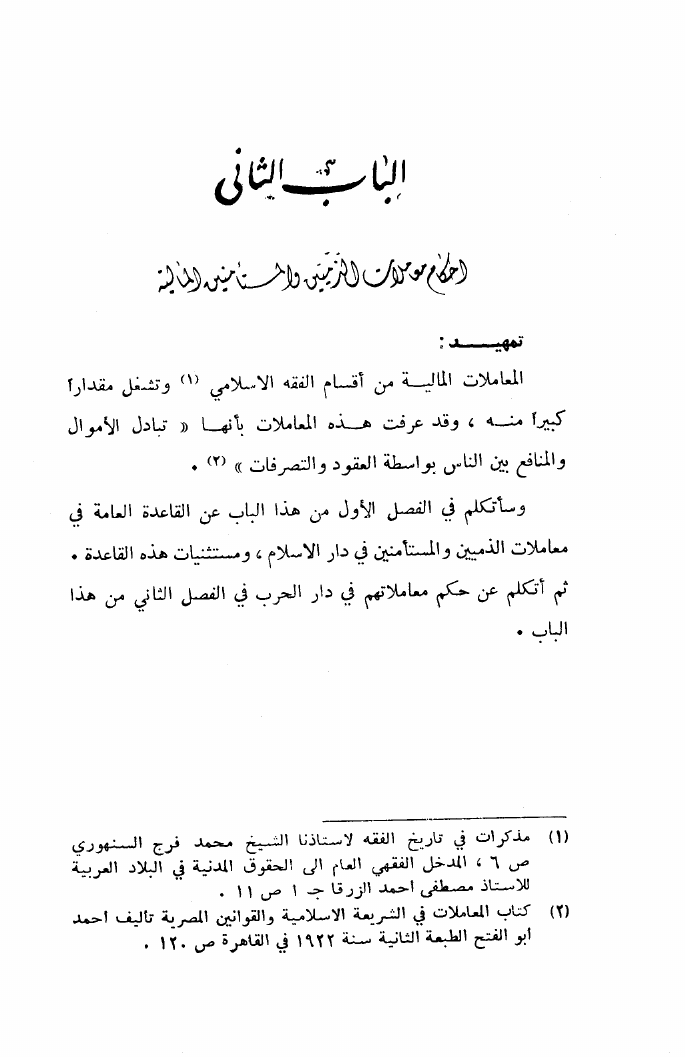 الباب الثانى
احكام معاملات الذميّين والمستأمنين المالية
تمهيد :
المعاملات المالية من أقسام الفقه الاسلامي (١) وتشغل مقداراً
كبيراً منه ، وقد عرفت هذه المعاملات بأنها « تبادل الأموال
والمنافع بين الناس بواسطة العقود والتصرفات » (٢) .
وسأتكلم في الفصل الأول من هذا الباب عن القاعدة العامة في
معاملات الذميين والمستأمنين في دار الاسلام ، ومستثنيات هذه القاعدة .
ثم أتكلم عن حكم معاملاتهم في دار الحرب في الفصل الثاني من هذا
الباب .
(١) مذكرات في تاريخ الفقه لاستاذنا الشيخ محمد فرج السنهوري
ص ٦ ، المدخل الفقهي العام الى الحقوق المدنية في البلاد العربية
للاستاذ مصطفى احمد الزرقا جـ ١ ص ١١ .
(٢) كتاب المعاملات في الشريعة الاسلامية والقوانين المصرية تأليف احمد
ابو الفتح الطبعة الثانية سنة ١٩٢٢ في القاهرة ص ١٢٠ .